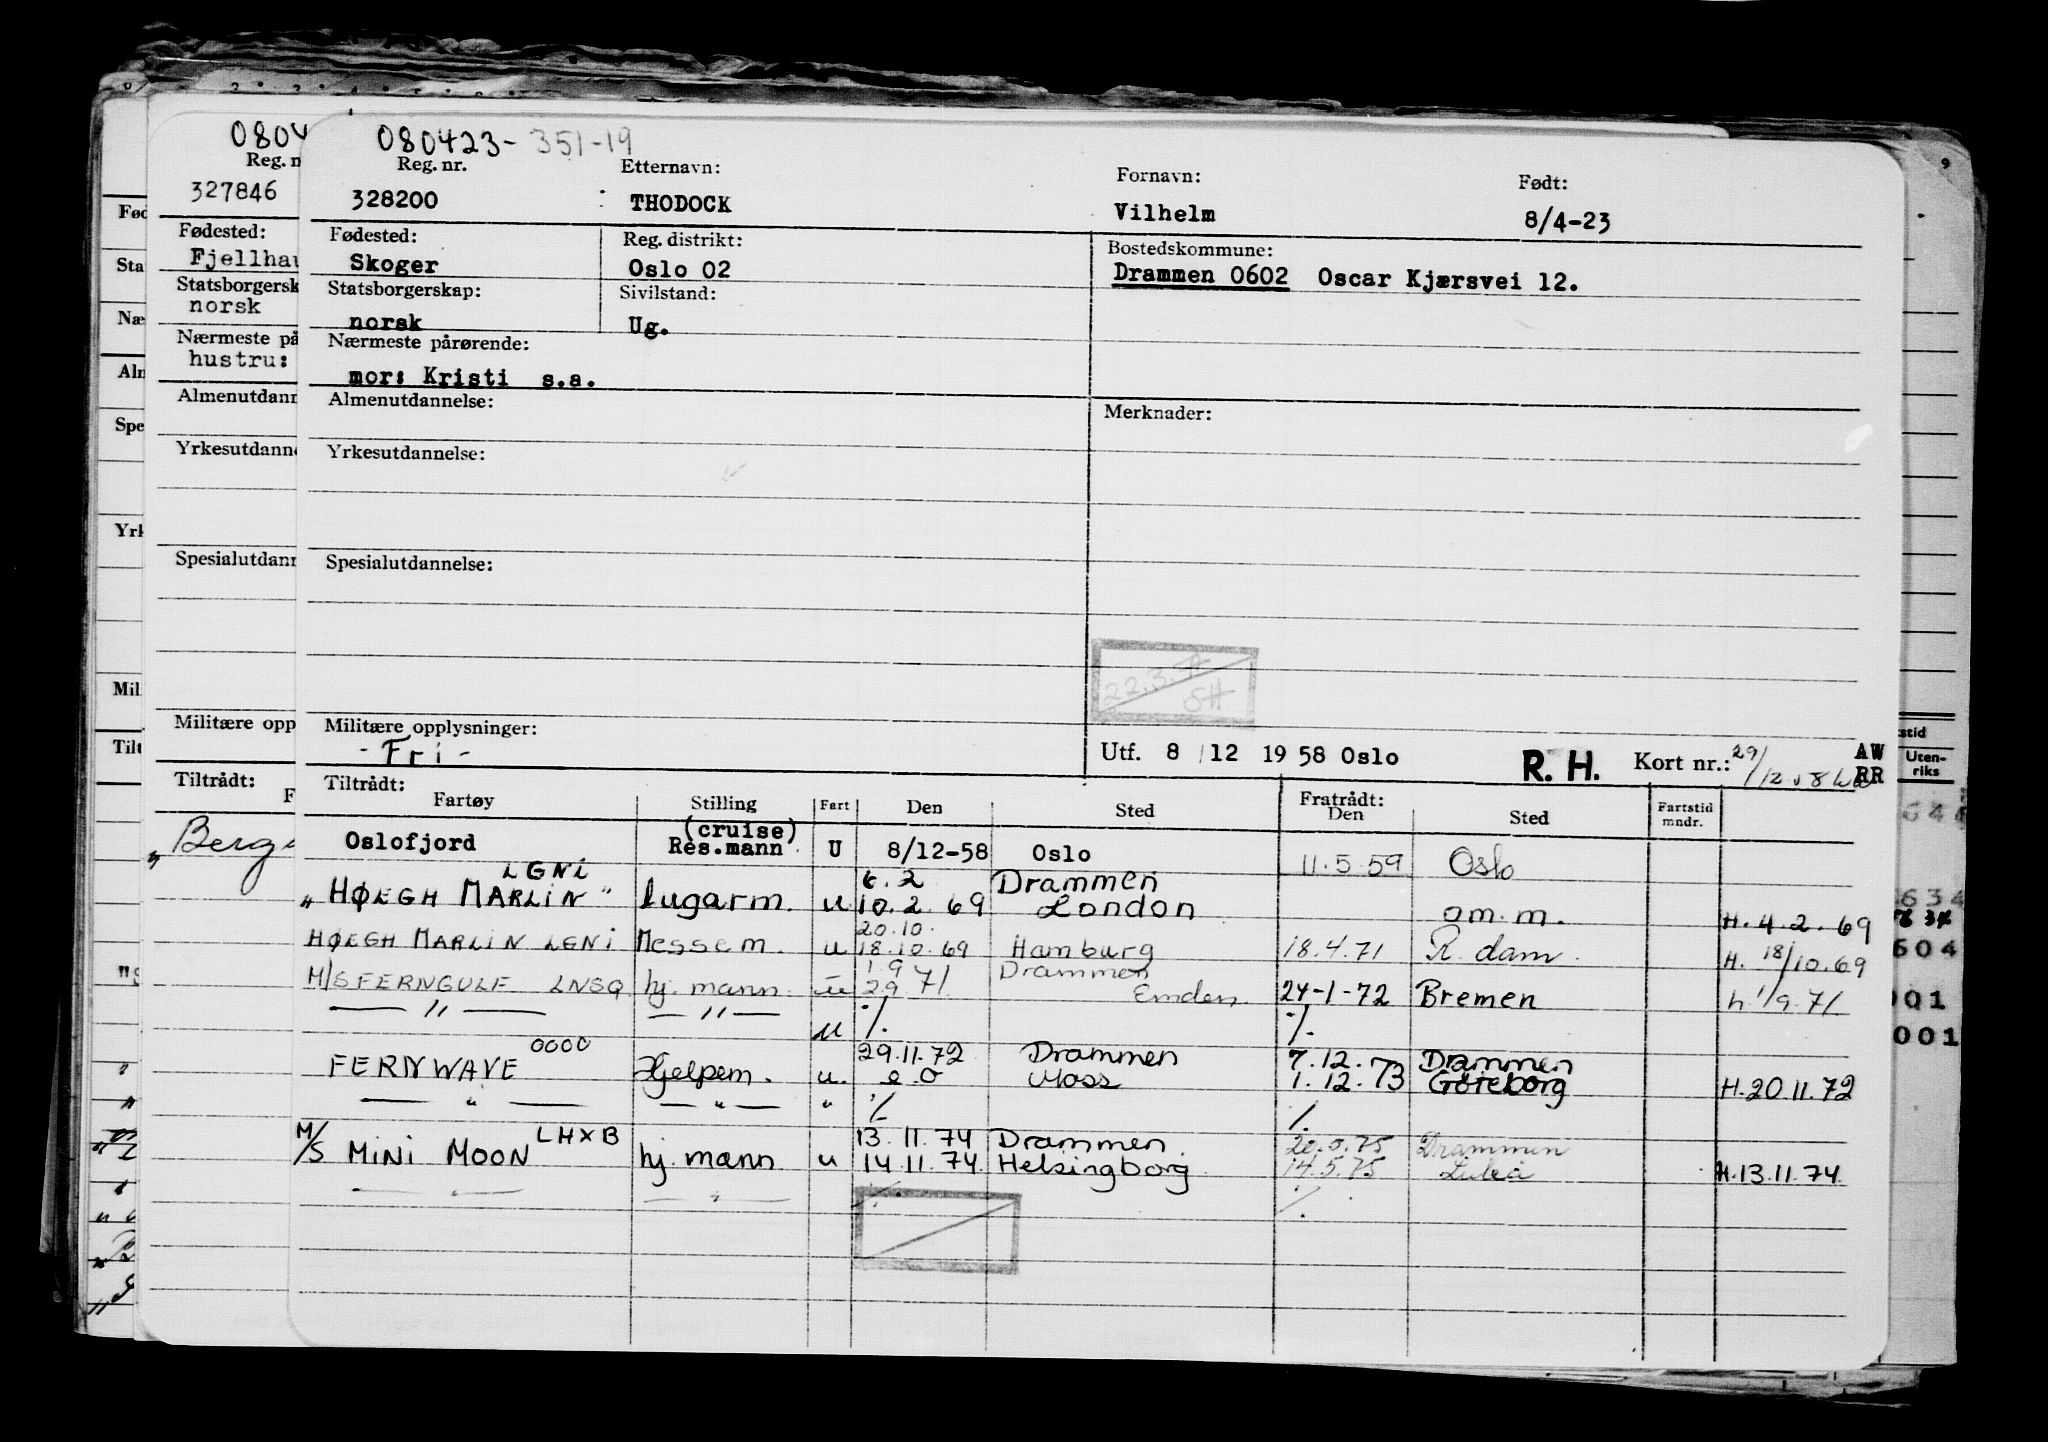 080423-351-19
Reg. nr. Etternavn: Fornavn: Født:
328200 THODOCK Vilhelm 8/4-23
Fødested: Reg. distrikt: Bostedskommune:
Skoger Oslo 02 Drammen 0602 Oscar Kjærsvei 12.
Statsborgerskap: Sivilstand:
norsk Ug.
Nærmeste pårørende:
mor: Kristi s.a.
Almenutdannelse: Merknader:
Yrkesutdannelse:
Spesialutdannelse:
22.3.
SH
Militære opplysninger:
- Fri -
Utf. 8/12 1958 Oslo R. H. Kort nr.: 29/12 AW
RR
Tiltrådt: Fratrådt:
Fartøy Stilling Fart Den Sted Den Sted Fartstid mndr.
(cruise)
Oslofjord Res.mann. U 8/12-58 Oslo 11.5.59 Oslo
LGNI 6.2 Drammen
"HØEGH MARLIN" lugarm. u 10.2.69 London om.m. H.4.2.69
20.10.
HØEGH MARLIN LGNI Messem. u 18.10.69 Hamburg 18.4.71 R.dam. H. 18/10.69
1.9 Drammen
M/S FERNGULF LNSQ hj. mann u 2.9 71 Emden 24-1-72 Bremen h. 1/9.71
— " — — " — u ./. ./.
0000 29.11.72 Drammen 7.12.73 Drammen
FERNWAVE Hjelpem. u. Moss 1.12.73 Göteborg H.20.11.72
— " — — " — " ./. ./.
LHXB 13.11.74 Drammen Drammen
M/S MINI MOON hj. mann u 14.11.74 Helsingborg 14.5.75 Luleå H.13.11.74
— " — — " — ./. ./.
0804
Reg. n
327846
Fødested:
Fjellhau
Statsborgersk
norsk
Nærmeste på
hustru:
Almenutdann
Yrkesutdanne
Spesialutdann
Militære opp
Tiltrådt:
F
Fød
Sta
Næ
Aln
Spe
Yrk
Mil
Tilt
stid
Uten-
riks